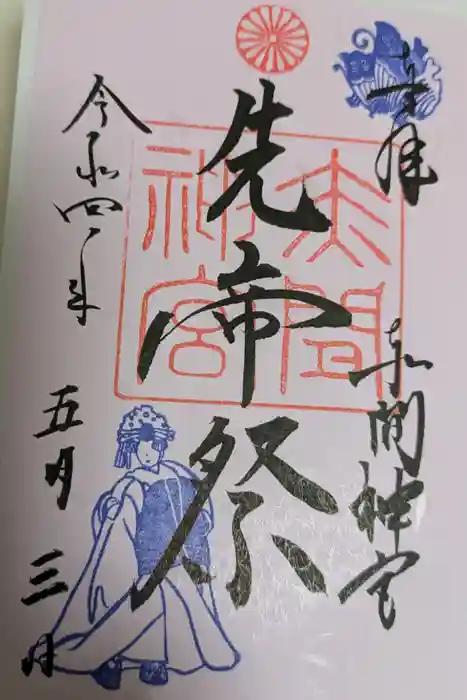 奉拝
赤間神宮
先帝祭
赤間神宮
令和四年
五月三日